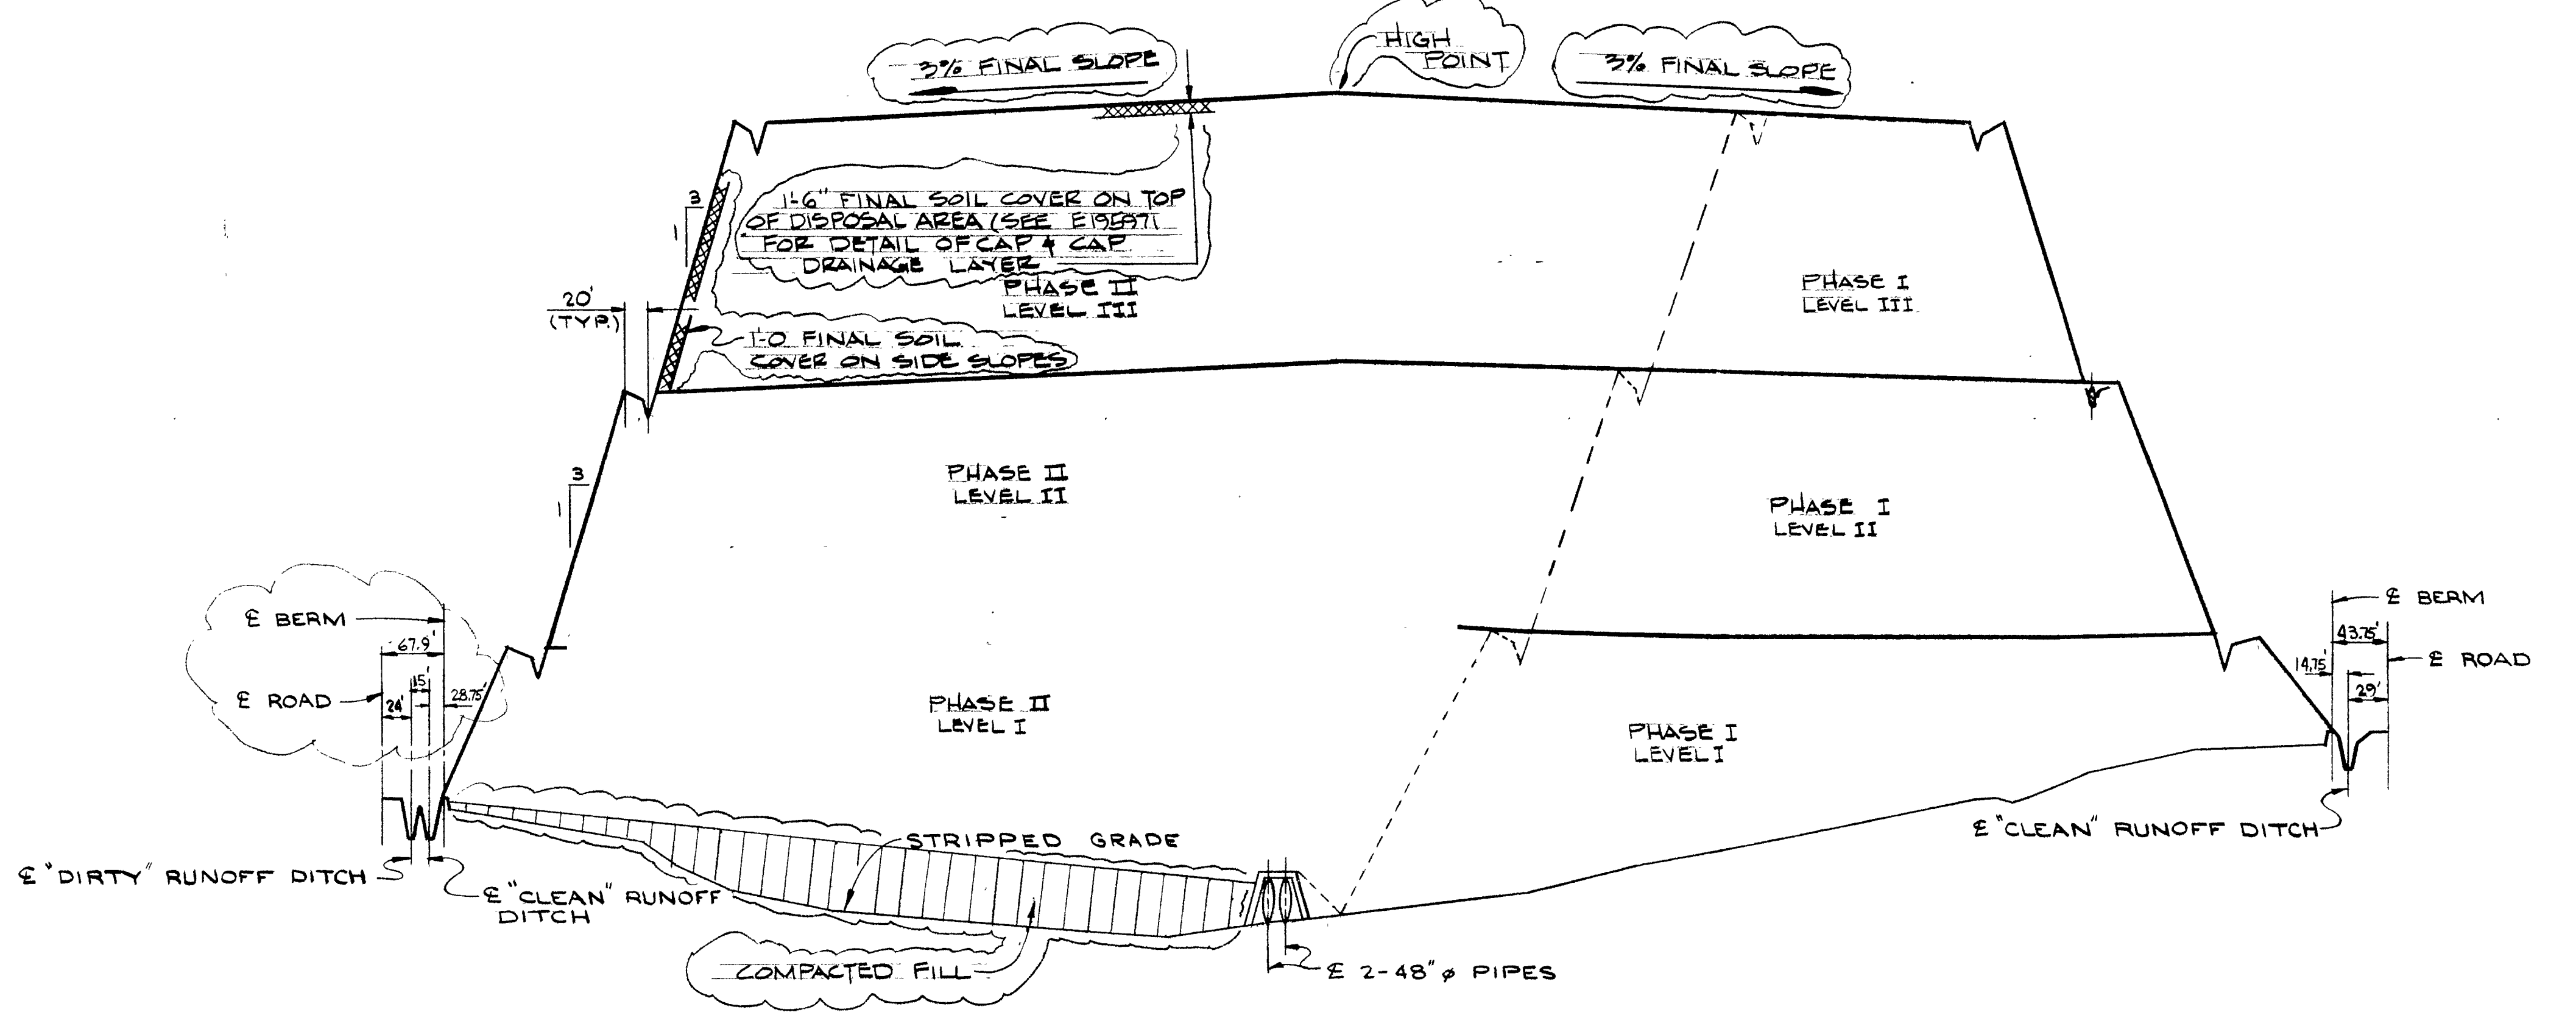 3% FINAL SLOPE
HIGH
POINT
3% FINAL SLOPE
3
1
1'-6" FINAL SOIL COVER ON TOP
OF DISPOSAL AREA (SEE E195971
FOR DETAIL OF CAP & CAP
DRAINAGE LAYER
PHASE II
LEVEL III
PHASE I
LEVEL III
20'
(TYP.)
1'-0 FINAL SOIL
COVER ON SIDE SLOPES
3
1
PHASE II
LEVEL II
PHASE I
LEVEL II
℄ BERM
67.9'
15'
℄ ROAD
24'
28.75'
℄ BERM
43.75'
14.75'
℄ ROAD
29'
PHASE II
LEVEL I
PHASE I
LEVEL I
STRIPPED GRADE
℄ "CLEAN" RUNOFF DITCH
℄ "DIRTY" RUNOFF DITCH
℄ "CLEAN" RUNOFF
DITCH
COMPACTED FILL
℄ 2-48" ø PIPES